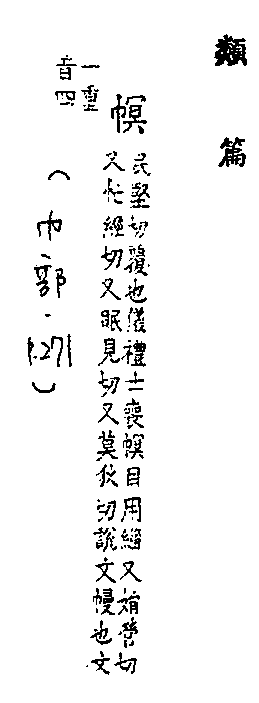 類篇
幎
民堅切覆也儀禮士喪幎目用緇又娟營切
又忙經切又眠見切又莫狄切說文幔也文
一重
音四
(巾部·P.271)